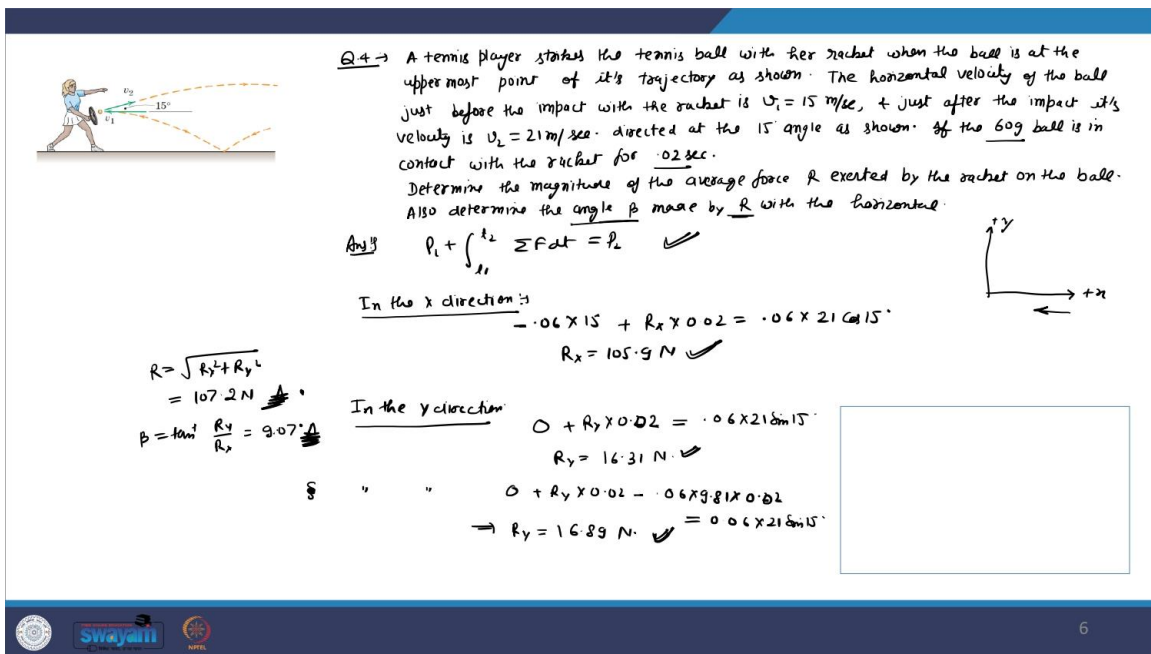 Q.4 → A tennis player strikes the tennis ball with her racket when the ball is at the
upper most point of it's trajectory as shown. The horizontal velocity of the ball
just before the impact with the racket is υ₁ = 15 m/se, & just after the impact it's
velocity is υ₂ = 21 m/sec. directed at the 15° angle as shown. If the 60g ball is in
contact with the racket for .02 sec.
Determine the magnitude of the average force R exerted by the racket on the ball.
Also determine the angle β made by R with the horizontal.
υ₂
15°
υ₁
Ans:
P₁ + ∫_{t₁}^{t₂} ΣF dt = P₂ ✓
+y
+x
In the x direction :-
- .06 × 15 + Rₓ × 0.02 = .06 × 21 cos 15°
Rₓ = 105.9 N ✓
R = √(Rₓ² + Rᵧ²)
= 107.2 N A.
β = tan⁻¹ Rᵧ/Rₓ = 9.07° A
In the y direction
0 + Rᵧ × 0.02 = .06 × 21 sin 15°
Rᵧ = 16.31 N. ✓
" " 0 + Rᵧ × 0.02 - .06 × 9.81 × 0.02
= 0.06 × 21 sin 15°
⇒ Rᵧ = 16.89 N. ✓
swayam
NPTEL
6